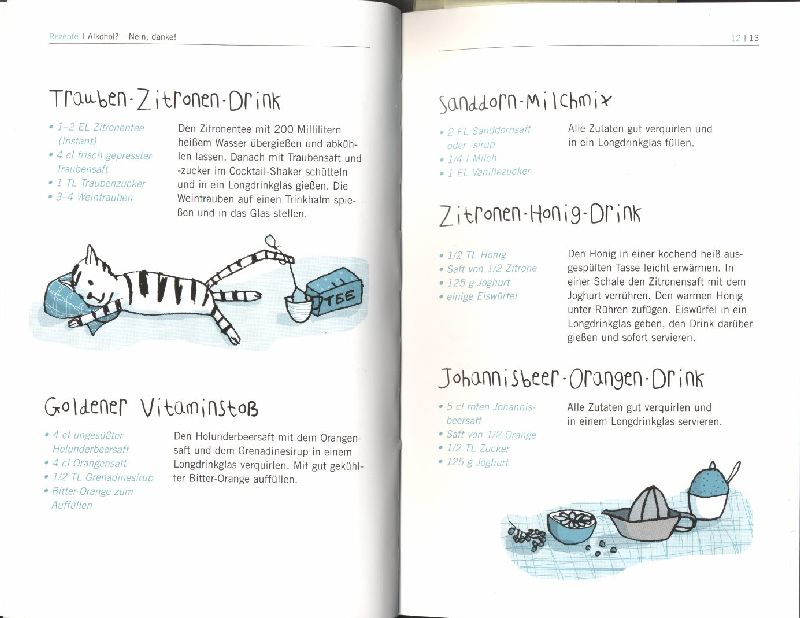 Rezepte | Alkohol? Nein, danke!
Trauben-Zitronen-Drink
• 1–2 EL Zitronentee
(Instant)
• 4 cl frisch gepresster
Traubensaft
• 1 TL Traubenzucker
• 3–4 Weintrauben
Den Zitronentee mit 200 Millilitern
heißem Wasser übergießen und abküh-
len lassen. Danach mit Traubensaft und
-zucker im Cocktail-Shaker schütteln
und in ein Longdrinkglas gießen. Die
Weintrauben auf einen Trinkhalm spie-
ßen und in das Glas stellen.
TEE
Goldener Vitaminstoß
• 4 cl ungesüßter
Holunderbeersaft
• 4 cl Orangensaft
• 1/2 TL Grenadinesirup
• Bitter-Orange zum
Auffüllen
Den Holunderbeersaft mit dem Orangen-
saft und dem Grenadinesirup in einem
Longdrinkglas verquirlen. Mit gut gekühl-
ter Bitter-Orange auffüllen.
12 | 13
Sanddorn-Milchmix
• 2 EL Sanddornsaft
oder -sirup
• 1/4 l Milch
• 1 EL Vanillezucker
Alle Zutaten gut verquirlen und
in ein Longdrinkglas füllen.
Zitronen-Honig-Drink
• 1/2 TL Honig
• Saft von 1/2 Zitrone
• 125 g Joghurt
• einige Eiswürfel
Den Honig in einer kochend heiß aus-
gespülten Tasse leicht erwärmen. In
einer Schale den Zitronensaft mit dem
Joghurt verrühren. Den warmen Honig
unter Rühren zufügen. Eiswürfel in ein
Longdrinkglas geben, den Drink darüber
gießen und sofort servieren.
Johannisbeer-Orangen-Drink
• 5 cl roten Johannis-
beersaft
• Saft von 1/2 Orange
• 1/2 TL Zucker
• 125 g Joghurt
Alle Zutaten gut verquirlen und
in einem Longdrinkglas servieren.